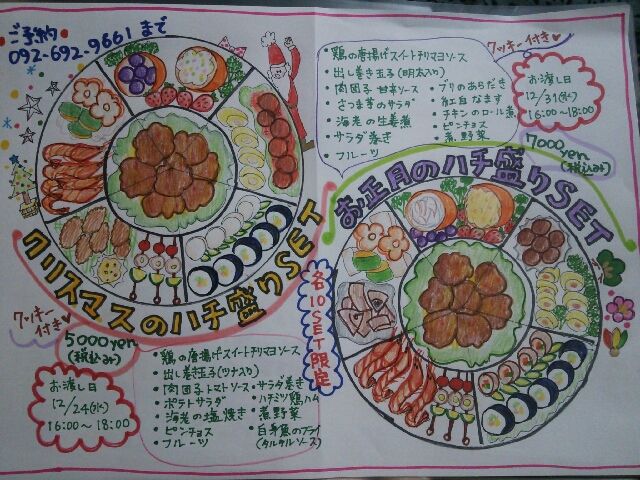 ご予約
092-692-9661まで
クッキー付き
・鶏の唐揚げスイートチリマヨソース
・出し巻き玉子(明太入り)
・肉団子 甘本ソース
・さつま芋のサラダ
・海老の生姜煮
・サラダ巻き
・フルーツ
・ブリのあらだき
・紅白なます
・チキンのロール煮
・ピンチョス
・煮野菜
お渡し日
12/31(水)
16:00〜18:00
7000yen
(税込み)
お正月のハチ盛りSET
クリスマスのハチ盛りSET
各10SET限定
クッキー付き
5000yen
(税込み)
お渡し日
12/24(水)
16:00〜18:00
・鶏の唐揚げスイートチリマヨソース
・出し巻き玉子(ツナ入り)
・肉団子トマトソース
・ポテトサラダ
・海老の塩焼き
・ピンチョス
・フルーツ
・サラダ巻き
・ハチミツ鶏ハム
・煮野菜
・白身魚のフライ
(タルタルソース)